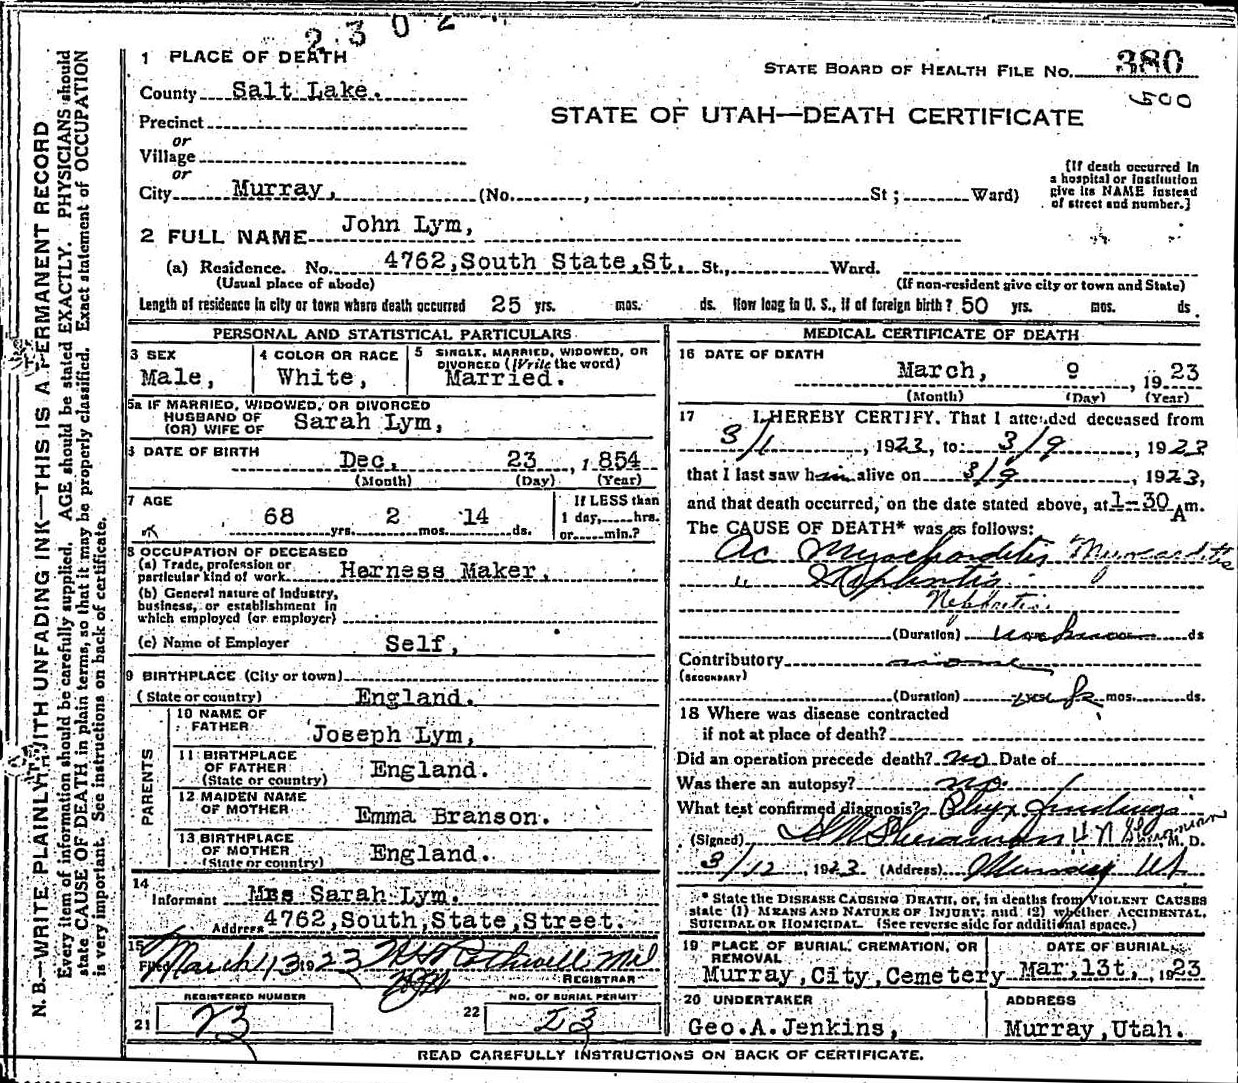 2302
1 PLACE OF DEATH
STATE BOARD OF HEALTH FILE NO. 380
County Salt Lake.
500
STATE OF UTAH—DEATH CERTIFICATE
Precinct
or
Village
or
City Murray, (No. , St; Ward)
{If death occurred in
a hospital or institution
give its NAME instead
of street and number.}
2 FULL NAME John Lym,
(a) Residence. No. 4762,South State,St. St., Ward.
(Usual place of abode) (If non-resident give city or town and State)
Length of residence in city or town where death occurred 25 yrs. mos. ds. How long in U. S., if of foreign birth? 50 yrs. mos. ds.
PERSONAL AND STATISTICAL PARTICULARS
3 SEX
Male,
4 COLOR OR RACE
White,
5 SINGLE, MARRIED, WIDOWED, OR
DIVORCED (Write the word)
Married.
5a IF MARRIED, WIDOWED, OR DIVORCED
HUSBAND OF
(OR) WIFE OF Sarah Lym,
6 DATE OF BIRTH
Dec. 23, 1854
(Month) (Day) (Year)
7 AGE
68 yrs. 2 mos. 14 ds.
If LESS than
1 day,......hrs.
or......min.?
8 OCCUPATION OF DECEASED
(a) Trade, profession or
particular kind of work Harness Maker.
(b) General nature of industry,
business, or establishment in
which employed (or employer)
(c) Name of Employer Self,
9 BIRTHPLACE (City or town)
(State or country) England.
PARENTS
10 NAME OF
FATHER Joseph Lym,
11 BIRTHPLACE
OF FATHER
(State or country) England.
12 MAIDEN NAME
OF MOTHER Emma Branson.
13 BIRTHPLACE
OF MOTHER
(State or country) England.
14
Informant Mrs Sarah Lym.
Address 4762,South,State,Street.
15
Filed March 13 1923 Rockwill MD
REGISTRAR
REGISTERED NUMBER
21 23
NO. OF BURIAL PERMIT
22 23
MEDICAL CERTIFICATE OF DEATH
16 DATE OF DEATH
March, 9, 1923
(Month) (Day) (Year)
17 I HEREBY CERTIFY, That I attended deceased from
3/1, 1923, to 3/9, 1923
that I last saw him alive on 3/9, 1923,
and that death occurred, on the date stated above, at 1-30 Am.
The CAUSE OF DEATH* was as follows:
Ac Myochorditis Myocarditis
" Nephritis
Nephritis
(Duration) ds
Contributory none
(SECONDARY)
(Duration) mos. ds.
18 Where was disease contracted
if not at place of death?
Did an operation precede death? no Date of
Was there an autopsy? no.
What test confirmed diagnosis? Phys findings
(Signed) H N Sheranian H N Sheranian, M. D.
3/12, 1923 (Address) Murray Ut
* State the DISEASE CAUSING DEATH, or, in deaths from VIOLENT CAUSES
state (1) MEANS AND NATURE OF INJURY; and (2) whether ACCIDENTAL,
SUICIDAL OR HOMICIDAL. (See reverse side for additional space.)
19 PLACE OF BURIAL, CREMATION, OR
REMOVAL
Murray,City,Cemetery
DATE OF BURIAL
Mar,13t, 1923
20 UNDERTAKER
Geo.A.Jenkins,
ADDRESS
Murray,Utah.
READ CAREFULLY INSTRUCTIONS ON BACK OF CERTIFICATE.
N. B.—WRITE PLAINLY WITH UNFADING INK—THIS IS A PERMANENT RECORD
Every item of information should be carefully supplied. AGE should be stated EXACTLY. PHYSICIANS should
state CAUSE OF DEATH in plain terms, so that it may be properly classified. Exact statement of OCCUPATION
is very important. See instructions on back of certificate.